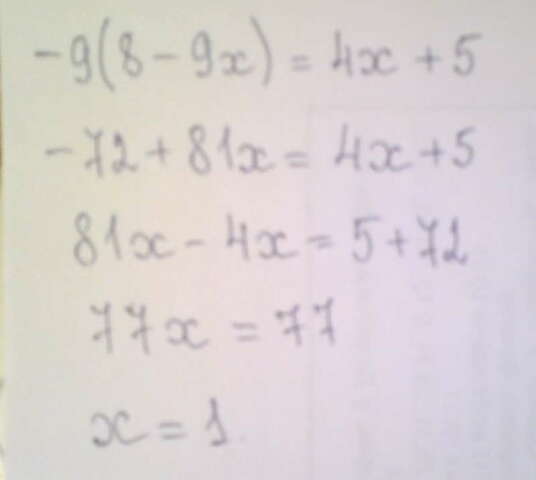 -9(8-9x)=4x+5
-72+81x=4x+5
81x-4x=5+72
77x=77
x=1